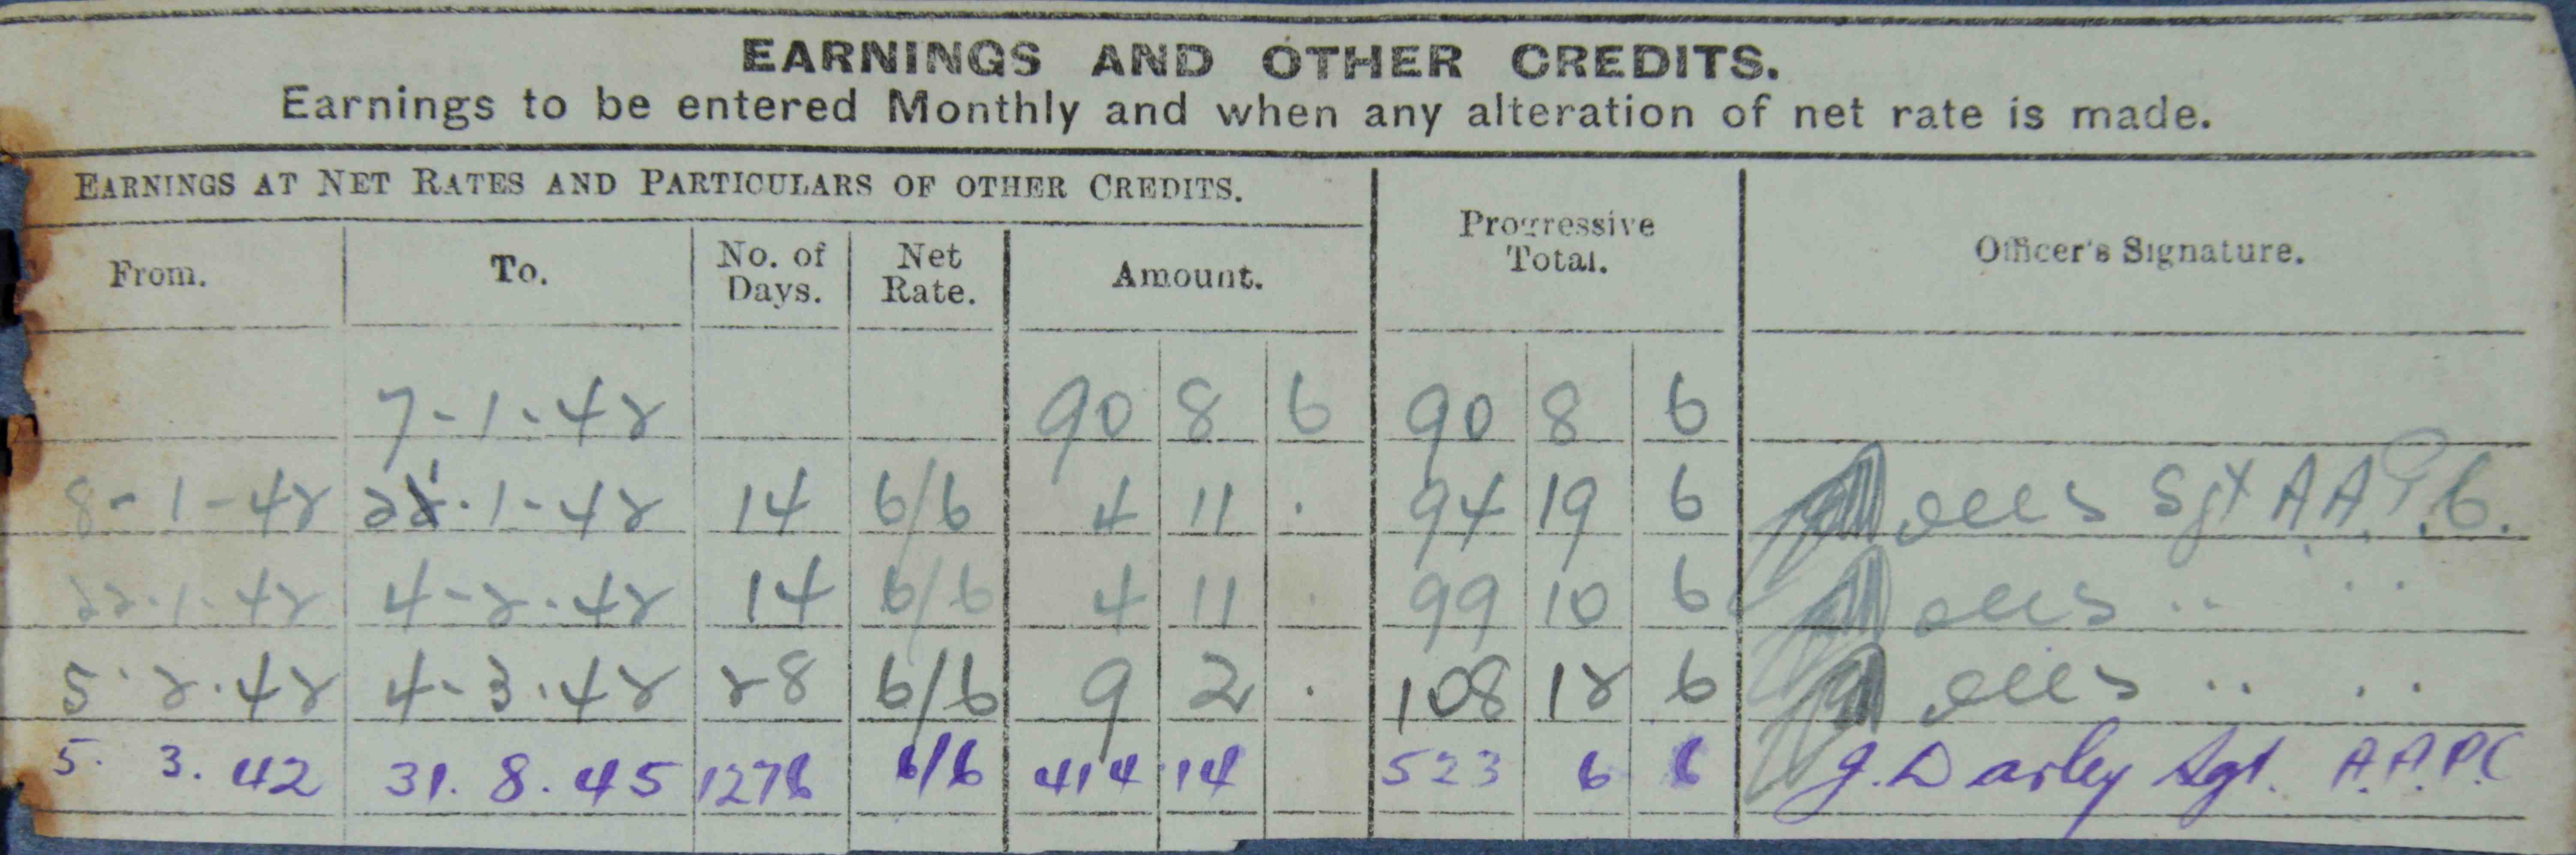 EARNINGS AND OTHER CREDITS.
Earnings to be entered Monthly and when any alteration of net rate is made.
EARNINGS AT NET RATES AND PARTICULARS OF OTHER CREDITS. Progressive Total. Officer's Signature.
From. To. No. of Days. Net Rate. Amount.
7-1-42 90 8 6 90 8 6
8-1-42 21.1-42 14 6/6 4 11 . 94 19 6 Sgt A.A.P.C.
22.1.42 4-2.42 14 6/6 4 11 . 99 10 6 .. ..
5.2.42 4-3.42 28 6/6 9 2 . 108 12 6 .. ..
5. 3. 42 31. 8. 45 1276 6/6 414 14 523 6 6 J. Darley Sgt. A.A.P.C